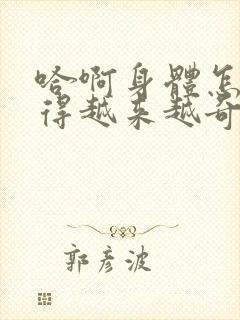 哈啊身體怎
得越来越奇
郭彦波